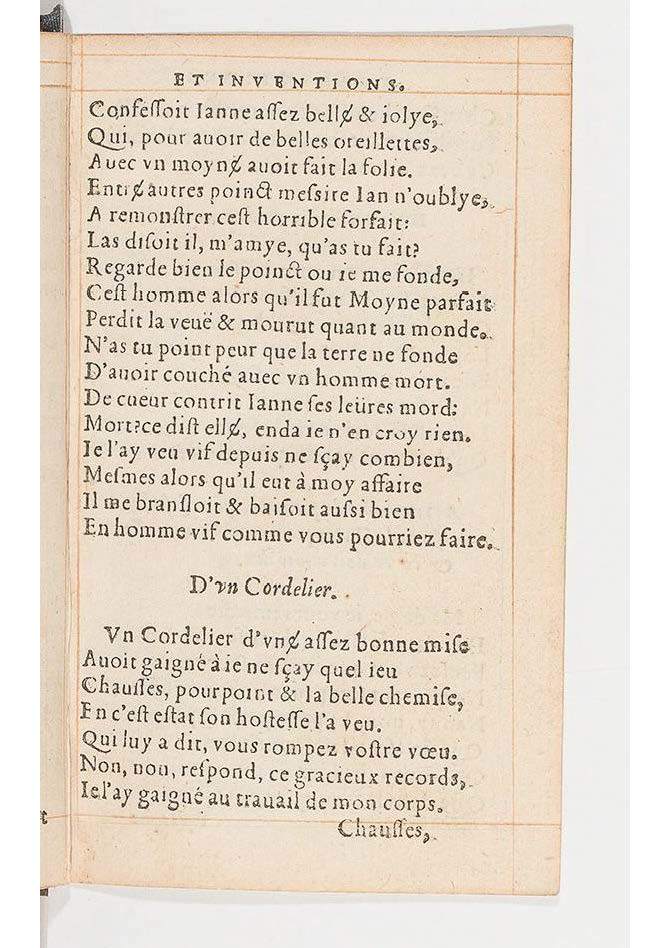 ET INVENTIONS.
Confeſſoit Ianne aſſez bellɇ & iolye,
Qui, pour auoir de belles oreillettes,
Auec vn moynɇ auoit fait la folie.
Entrɇ autres poinct meſsire Ian n'oublye,
A remonſtrer ceſt horrible forfait:
Las diſoit il, m'amye, qu'as tu fait?
Regarde bien le poinct ou ie me fonde,
Ceſt homme alors qu'il fut Moyne parfait
Perdit la veuë & mourut quant au monde.
N'as tu point peur que la terre ne fonde
D'auoir couché auec vn homme mort.
De cueur contrit Ianne ſes leüres mord:
Mort?ce diſt ellɇ, enda ie n'en croy rien.
Ie l'ay veu vif depuis ne ſçay combien,
Meſmes alors qu'il eut à moy affaire
Il me branſloit & baiſoit auſsi bien
En homme vif comme vous pourriez faire.
D'vn Cordelier.
Vn Cordelier d'vnɇ aſſez bonne miſe
Auoit gaigné à ie ne ſçay quel ieu
Chauſſes, pourpoint & la belle chemiſe,
En c'eſt eſtat ſon hoſteſſe l'a veu.
Qui luy a dit, vous rompez voſtre vœu.
Non, non, reſpond, ce gracieux records,
Ie l'ay gaigné au trauail de mon corps.
Chauſſes,